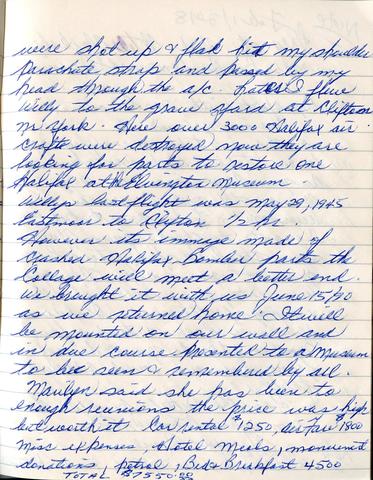 were shot up & flak hit my shoulder
Parachute strap and passed by my
head through the a/c. Later I flew
Willy to the grave yard at Clifton
nr York. Here over 3000 Halifax air
crafts were destroyed now they are
looking for parts to restore one
Halifax at the Elvington Museum.
Willys last flight was May 29, 1945
Eastmoor to Clifton 1/2 hr.
However its immage made of
crashed Halifax Bomber parts the
College will meet a better end.
We brought it with us June 15/90
as we returned home. It will
be mounted on our wall and
in due course presented to a Museum
to be seen & remembered by all.
Marilyn said she has been to
enough reunions the price was high
but worth it Car rental $1250, air fare $1800
Misc expenses, Hotel Meals, monument
donations, petrol, Bed & Breakfast 4500
TOTAL $7550.00